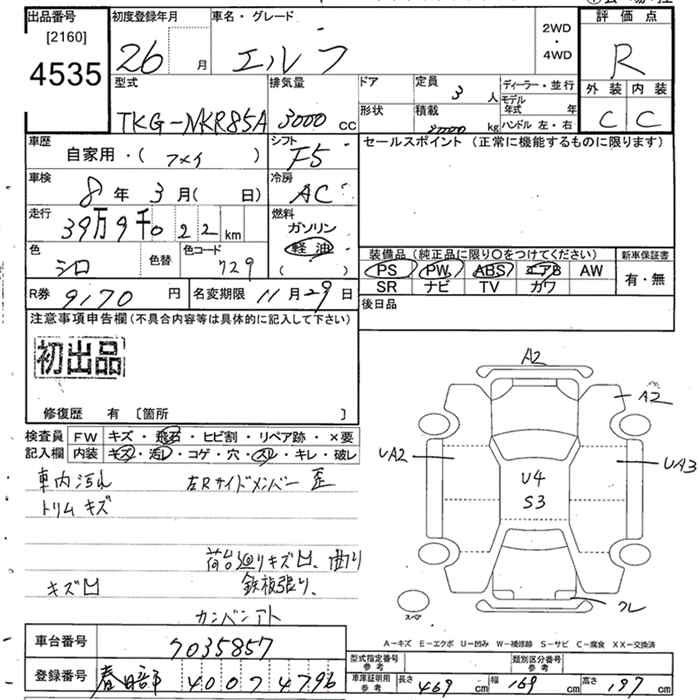 出品番号
[2160]
4535
初度登録年月
26 月
車名・グレード
エルフ
2WD
・
4WD
評価点
R
外装 内装
C C
型式
TKG-NKR85A
排気量
3000 cc
ドア
形状
定員
3 人
積載
2000 kg
ディーラー・並行
モデル年式 年
ハンドル 左・右
車歴
自家用・( )
シフト
F5
車検
8年 3月( 日)
冷房
AC
走行
39万9千022 km
燃料
ガソリン
軽油
( )
色
シロ
色替
色コード
729
R券 9170 円
名変期限 11月29日
セールスポイント (正常に機能するものに限ります)
装備品 (純正品に限り○をつけてください)
PS PW ABS エアB AW
SR ナビ TV カワ
新車保証書
有・無
後日品
注意事項申告欄(不具合内容等は具体的に記入して下さい)
初出品
修復歴 有 [箇所 ]
検査員記入欄
FW キズ・飛石・ヒビ割・リペア跡・×要
内装 キズ・汚レ・コゲ・穴・スレ・キレ・破レ
車内汚れ
左Rサイドメンバー 歪
トリムキズ
荷台廻りキズ凹、曲り
キズ凹
鉄板張り、
カンバンアト
A2
A2
UA2
UA3
U4
S3
クレ
スペア
A-キズ E-エクボ U-凹み W-補修跡 S-サビ C-腐食 XX-交換済
車台番号
7035857
登録番号
春日部 400 フ 4796
型式指定番号
参考
類別区分番号
参考
車庫証明用
参考
長さ 469 cm
幅 169 cm
高さ 197 cm